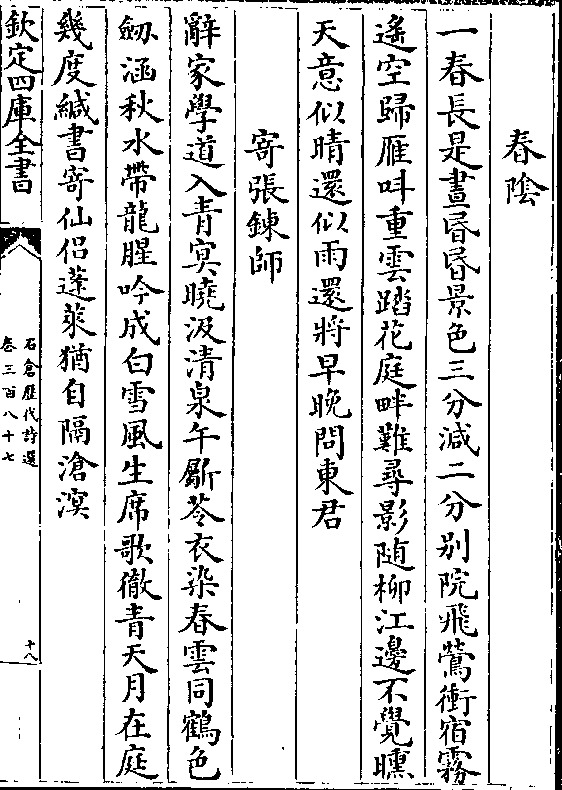 春陰
一春長是晝昏昏景色三分減二分别院飛鶯衝宿霧
遙空歸雁呌重雲踏花庭畔難尋影随柳江邊不覺曛
天意似晴還似雨還將早晚問東君
寄張鍊師
辭家學道入青冥曉汲清泉午斸苓衣染春雲同鶴色
劒涵秋水帶龍腥吟成白雪風生席歌徹青天月在庭
幾度緘書寄仙侣蓬萊猶自隔滄溟
欽定四庫全書
石倉歴代詩選
卷三百八十七
十八